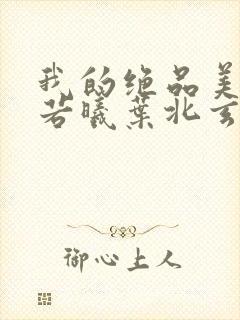 我的绝品美
若曦叶北玄
御心上人